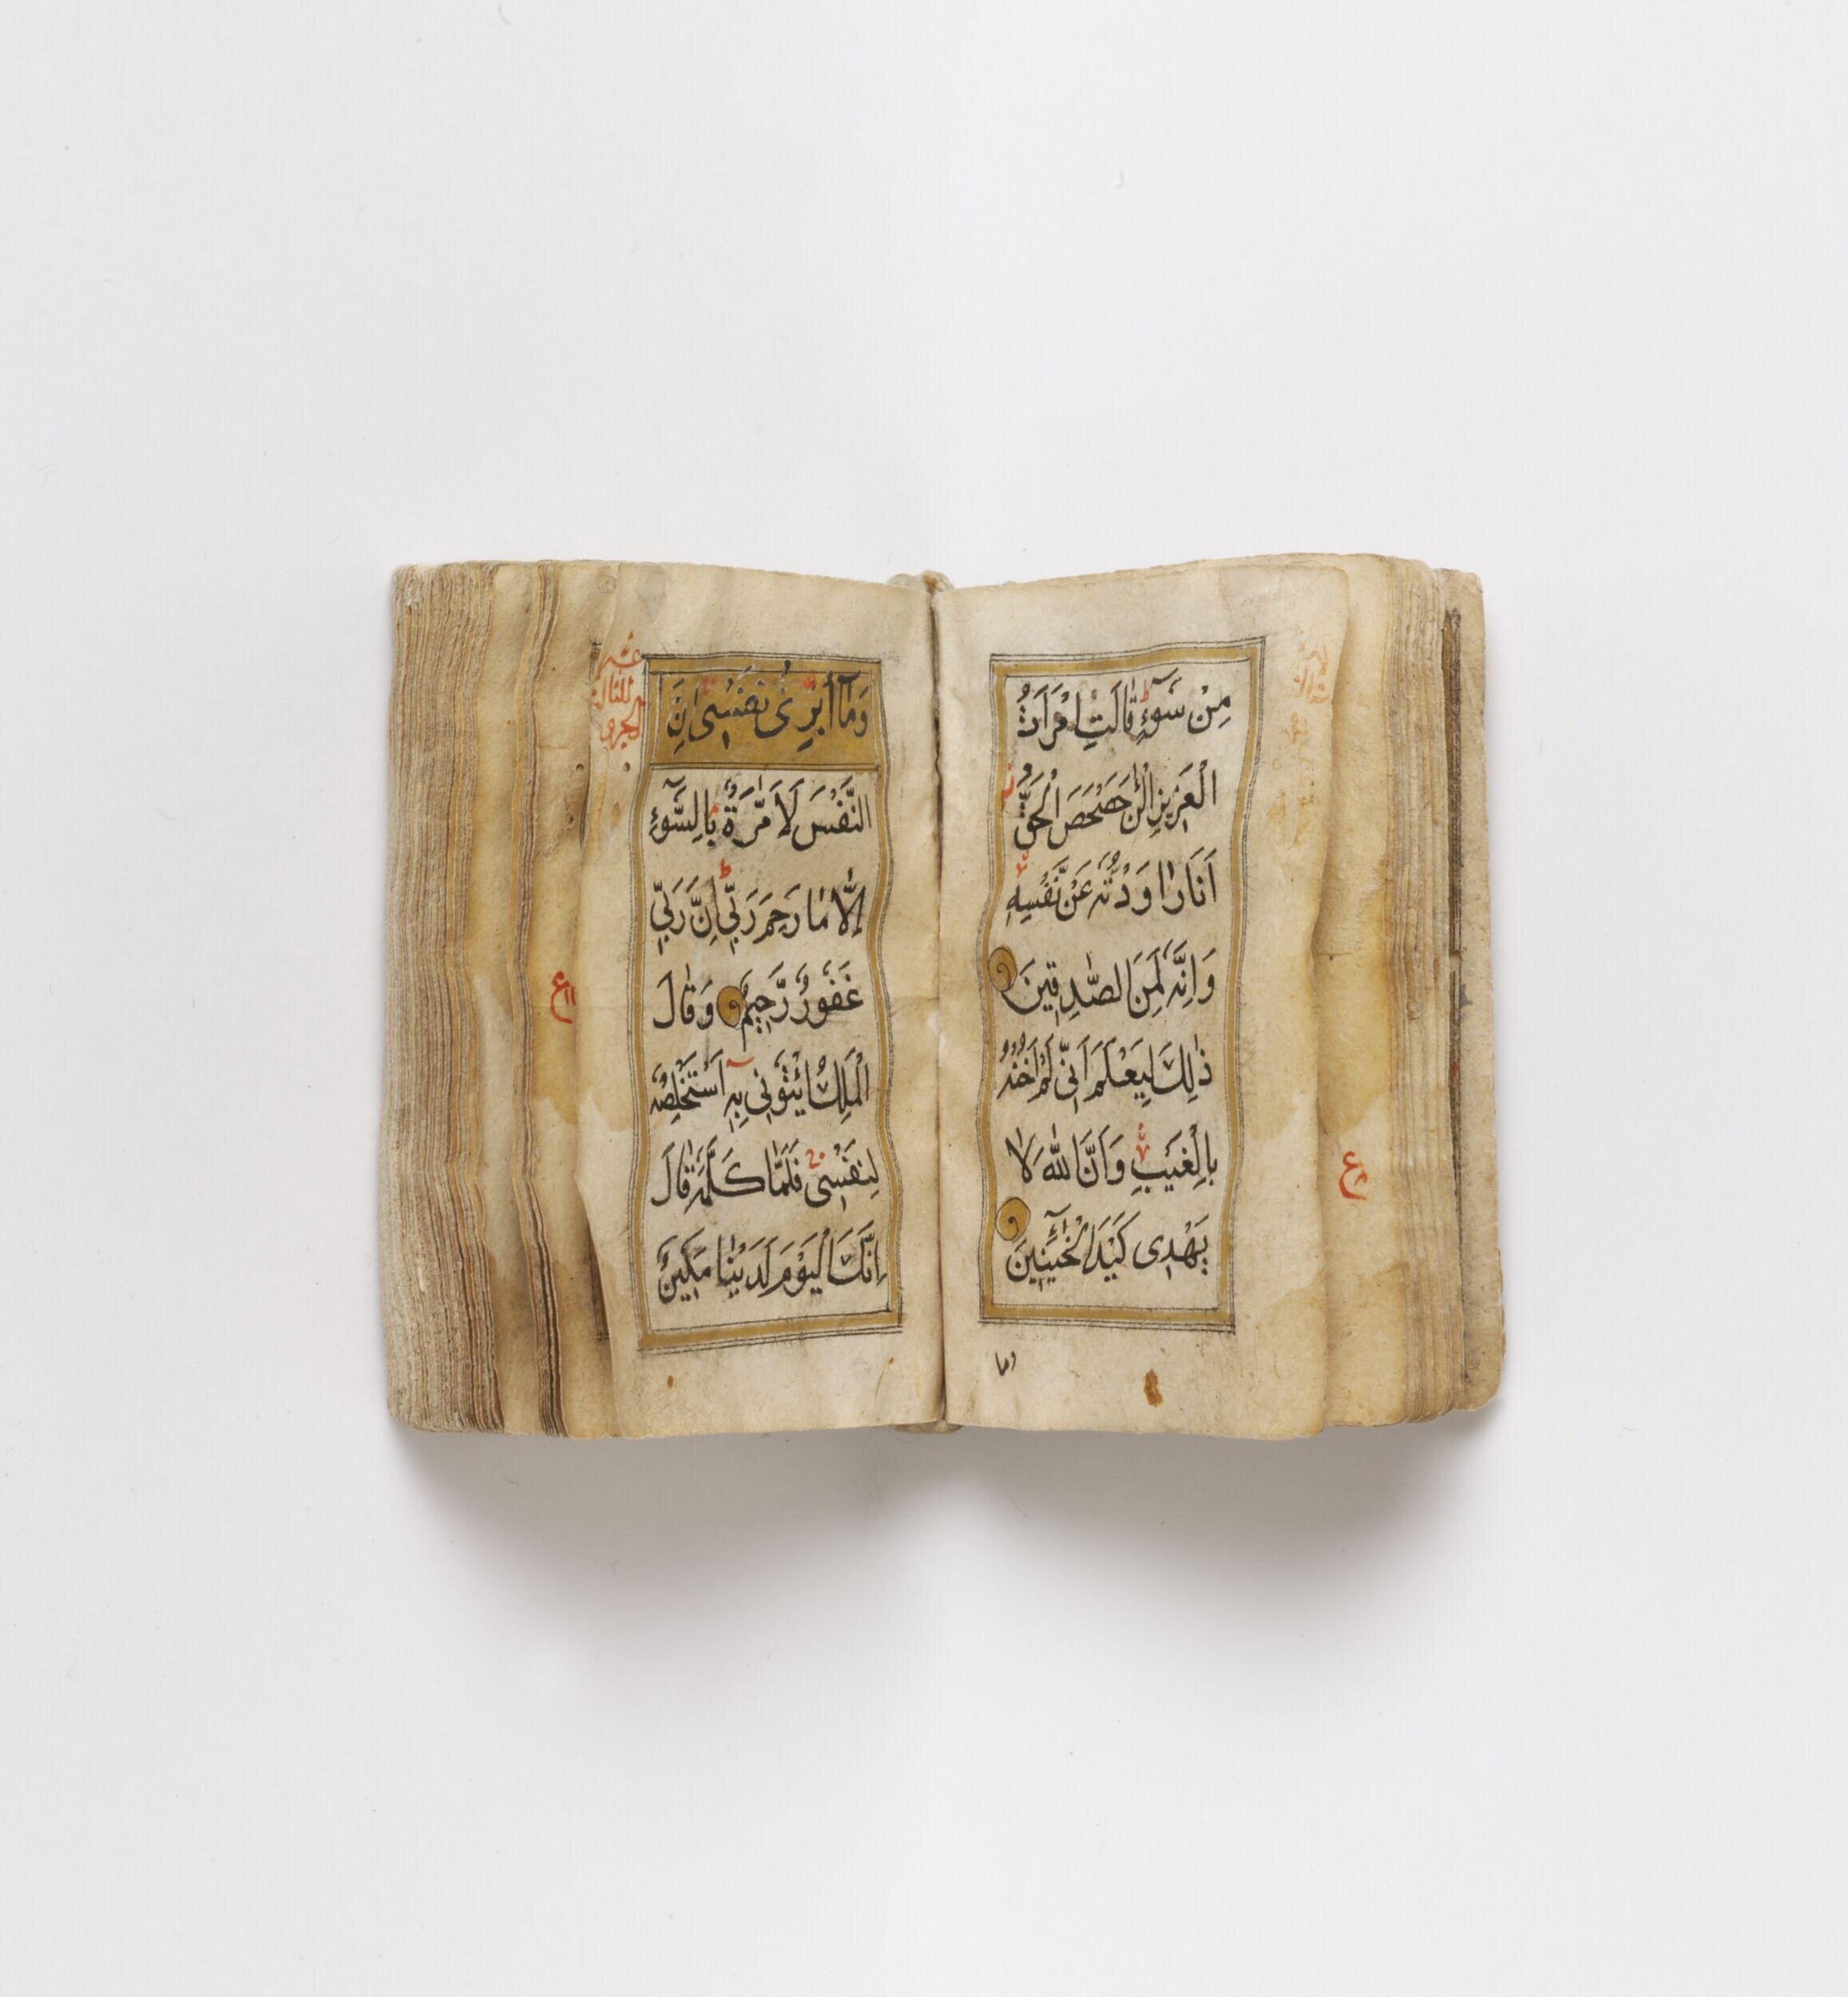 مِنْ سُوٓءٍ قَالَتِ امْرَاَتُ
الْعَزِيزِ الْـٰٔنَ حَصْحَصَ الْحَقُّ
اَنَا رَاوَدْتُّهُ عَنْ نَّفْسِهٖ
وَاِنَّهُ لَمِنَ الصّٰدِقِينَ
ذٰلِكَ لِيَعْلَمَ اَنِّى لَمْ اَخُنْهُ
بِالْغَيْبِ وَاَنَّ اللّٰهَ لَا
يَهْدِى كَيْدَ الْخَآئِنِينَ
وما
وَمَآ اُبَرِّئُ نَفْسِى اِنَّ
النَّفْسَ لَاَمَّارَةٌ بِالسُّوٓءِ
اِلَّا مَا رَحِمَ رَبِّى اِنَّ رَبِّى
غَفُورٌ رَّحِيمٌ وَقَالَ
الْمَلِكُ ائْتُونِى بِهٖٓ اَسْتَخْلِصْهُ
لِنَفْسِى فَلَمَّا كَلَّمَهُ قَالَ
اِنَّكَ الْيَوْمَ لَدَيْنَا مَكِينٌ